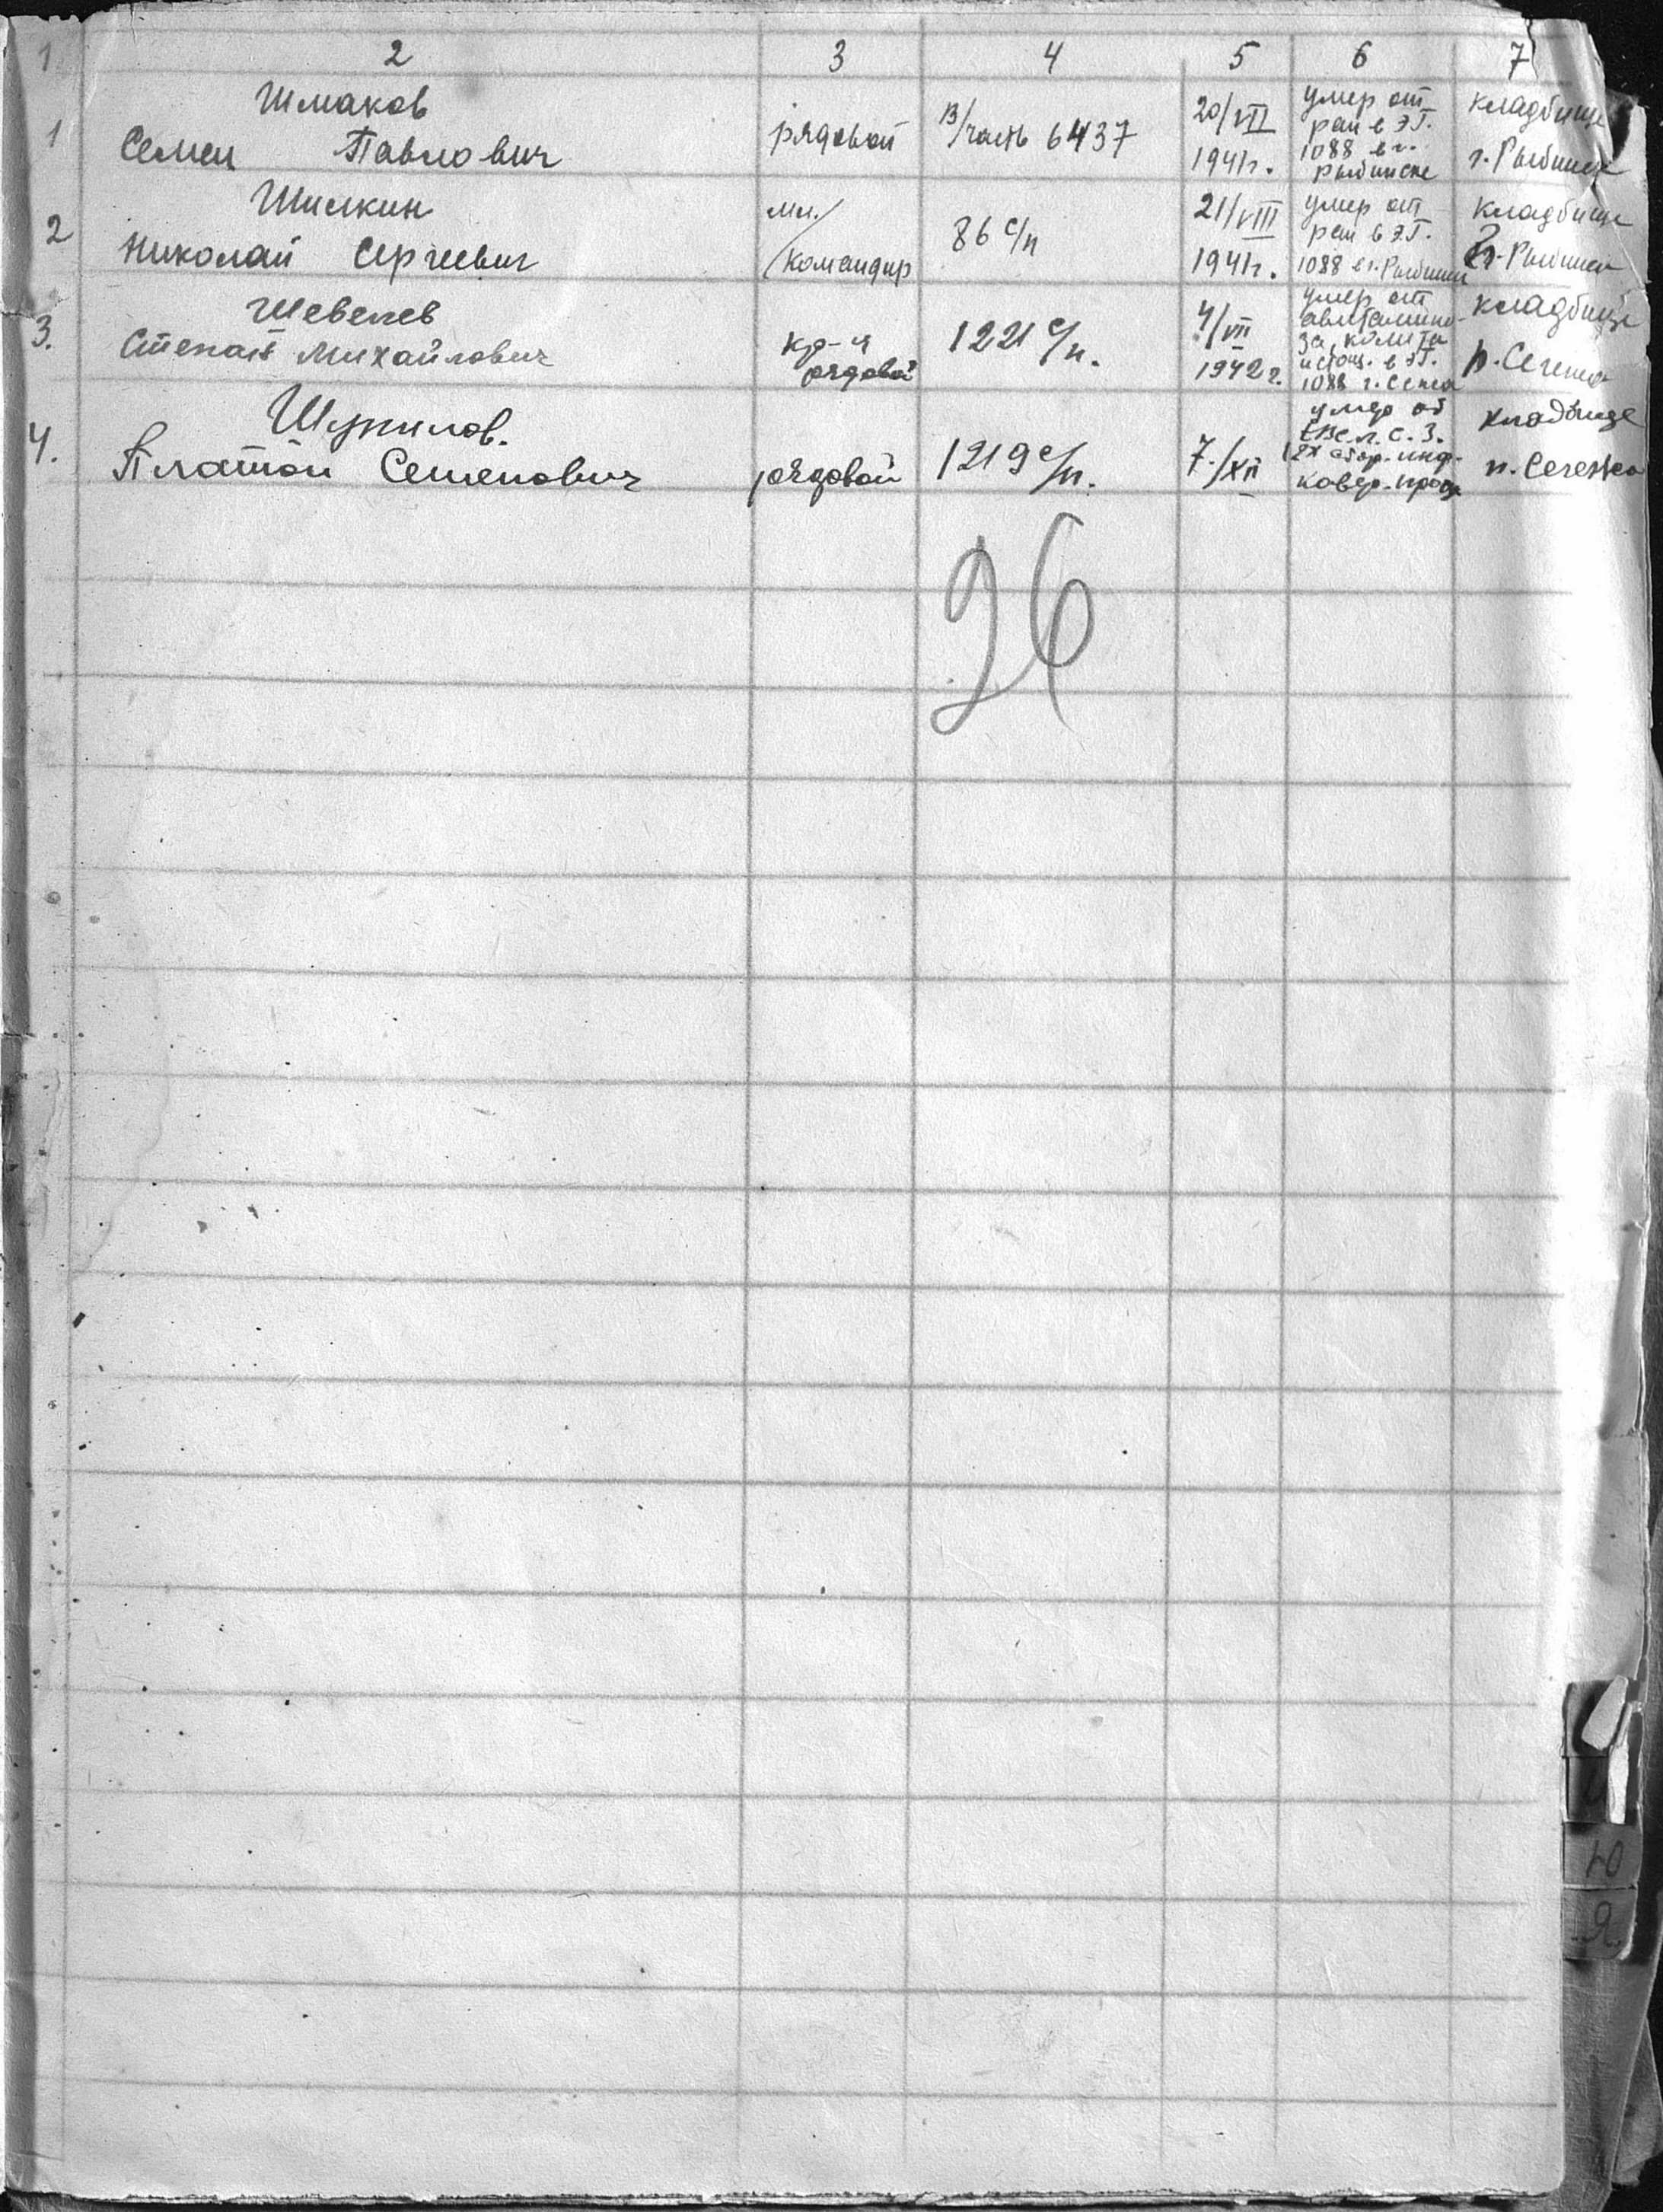 1 2 3 4 5 6 7
Шмаков
1 Семен Павлович рядовой В/часть 6437 20/VII 1941г. умер от ран в ЭГ. 1088 в г. Рыбинске кладбище г. Рыбинск
Шилкин
2 Николай Сергеевич мл./командир 86 с/п 21/VIII 1941г. умер от ран в ЭГ. 1088 в г. Рыбинск кладбище г. Рыбинск
Шевелев
3. Степан Михайлович кр-ц рядовой 1221 с/п. 4/VII 1942г. умер от авитамино- за, колита истощ. в ЭГ. 1088 кладбище
4. Платон Семенович рядовой 1219 с/п. 7./XII умер от кладбище
96
Ю
Я.